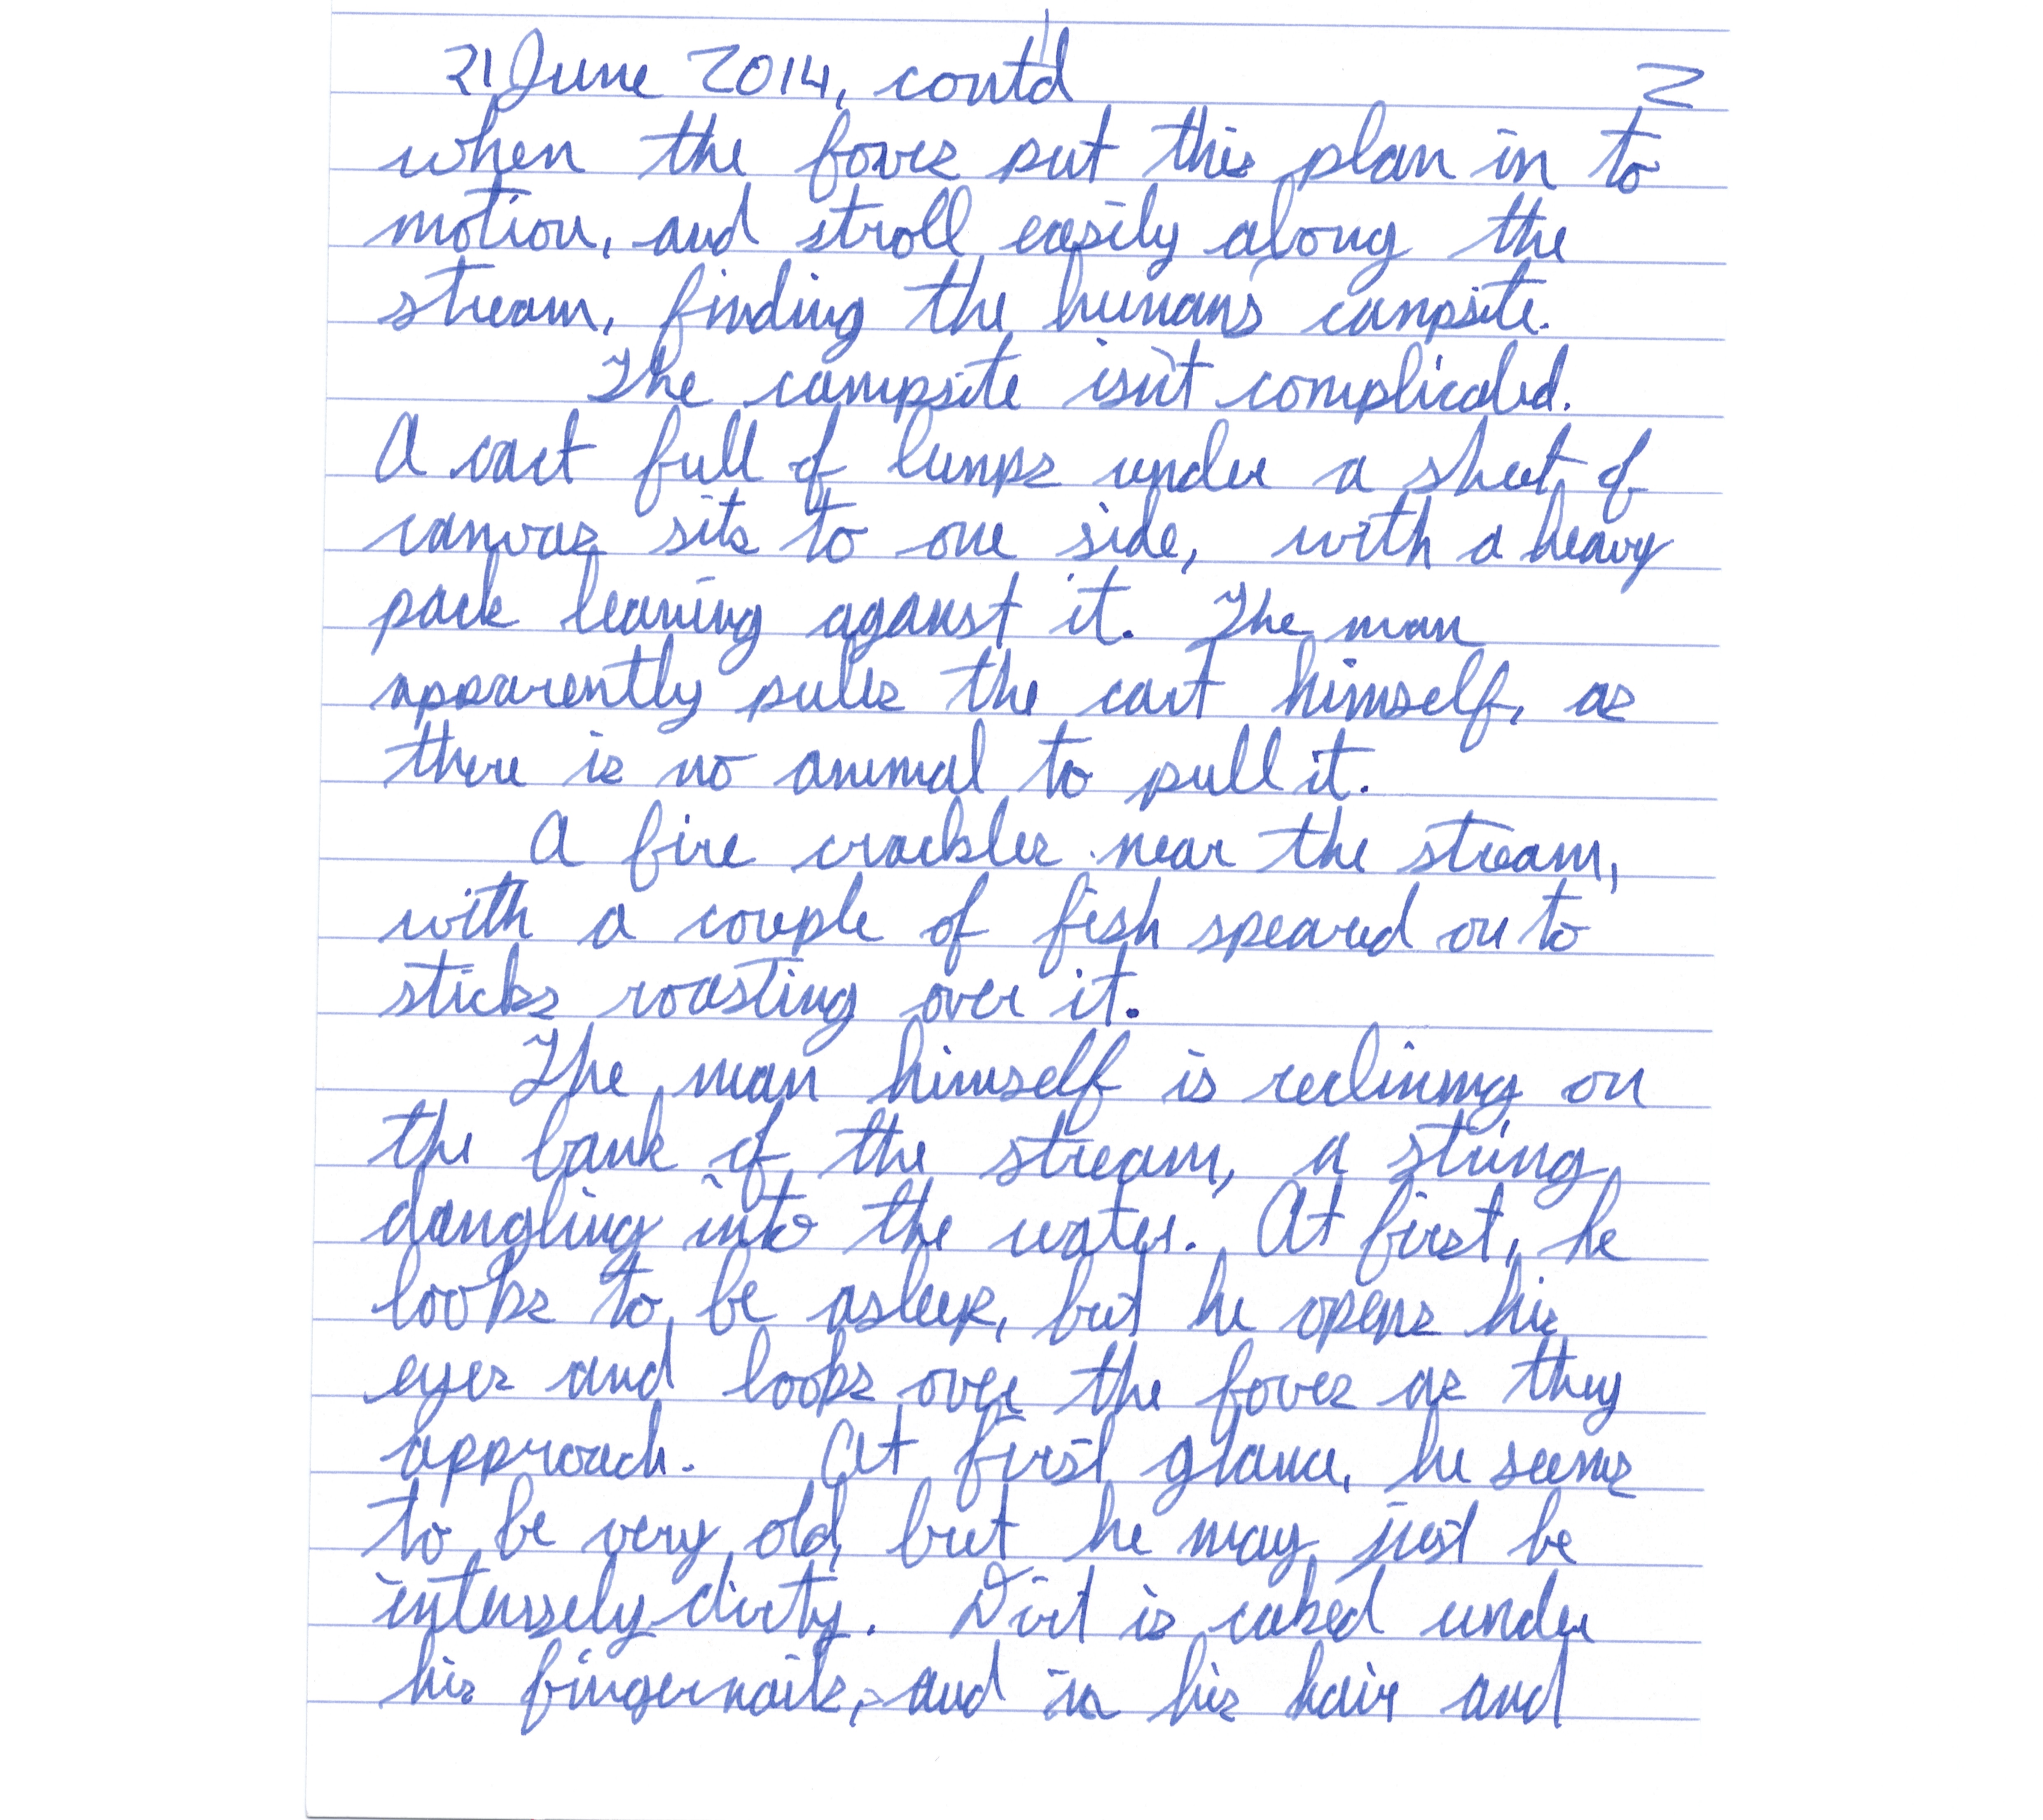 21 June 2014, contd 2
when the foxes put this plan in to
motion, and stroll easily along the
stream, finding the humans campsite.
The campsite isn't complicated.
A cart full of lumps under a sheet of
canvas sits to one side, with a heavy
pack leaning against it. The man
apparently pulls the cart himself, as
there is no animal to pull it.
A fire crackles near the stream,
with a couple of fish speared on to
sticks roasting over it.
The man himself is reclining on
the bank of the stream, a string
dangling into the water. At first, he
looks to be asleep, but he opens his
eyes and looks over the foxes as they
approach. At first glance, he seems
to be very old, but he may just be
intensely dirty. Dirt is caked under
his fingernails, and in his hair and